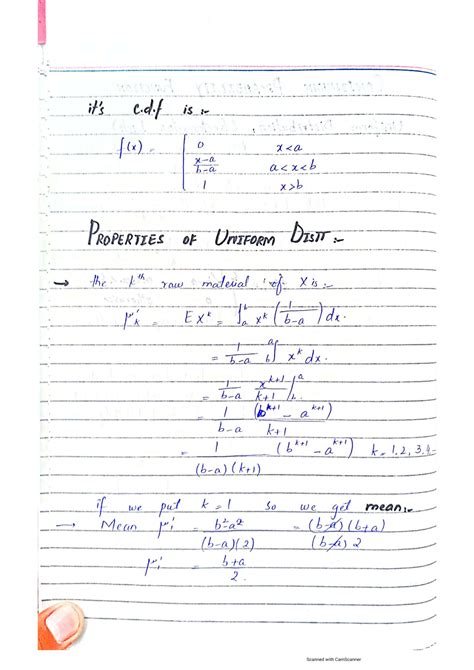 it's c.d.f is :-
f(x) = { 0 x<a
x-a/b-a a<x<b
1 x>b
PROPERTIES OF UNIFORM DISTT :-
→ the kth raw material of X is :-
μ'k = EX^k = ∫_a^b x^k (1/b-a) dx.
= 1/b-a ∫_b^a x^k dx.
= 1/b-a x^k+1/k+1 |
= 1/b-a (b^k+1 - a^k+1)/k+1
= 1/(b-a)(k+1) (b^k+1 - a^k+1) k = 1,2,3,4-
if we put k=1 so we get mean:-
→ Mean μ'1 = b²-a²/(b-a)(2) = (b-a)(b+a)/(b-a)2
μ'1 = b+a/2.
Scanned with CamScanner